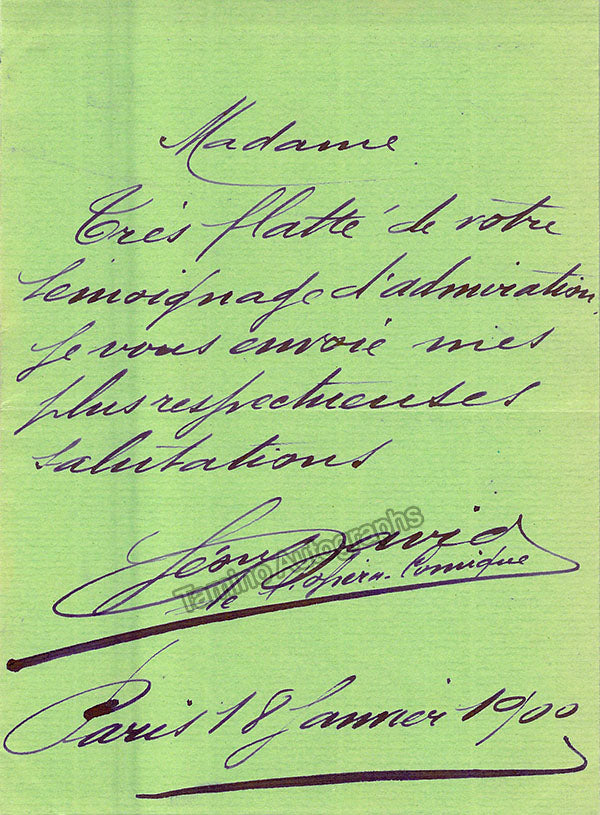 Madame
Très flatté de votre
témoignage d'admiration,
je vous envoie mes
plus respectueuses
salutations
Léon David
de l'opéra-Comique
Tamino Autographs
Paris 18 Janvier 1900